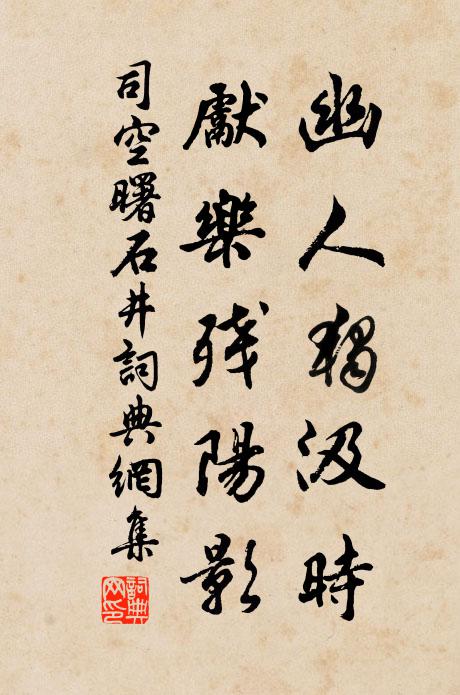 幽人獨汲時
獻樂殘陽影
司空曙石井詞典網集
詞典
网印